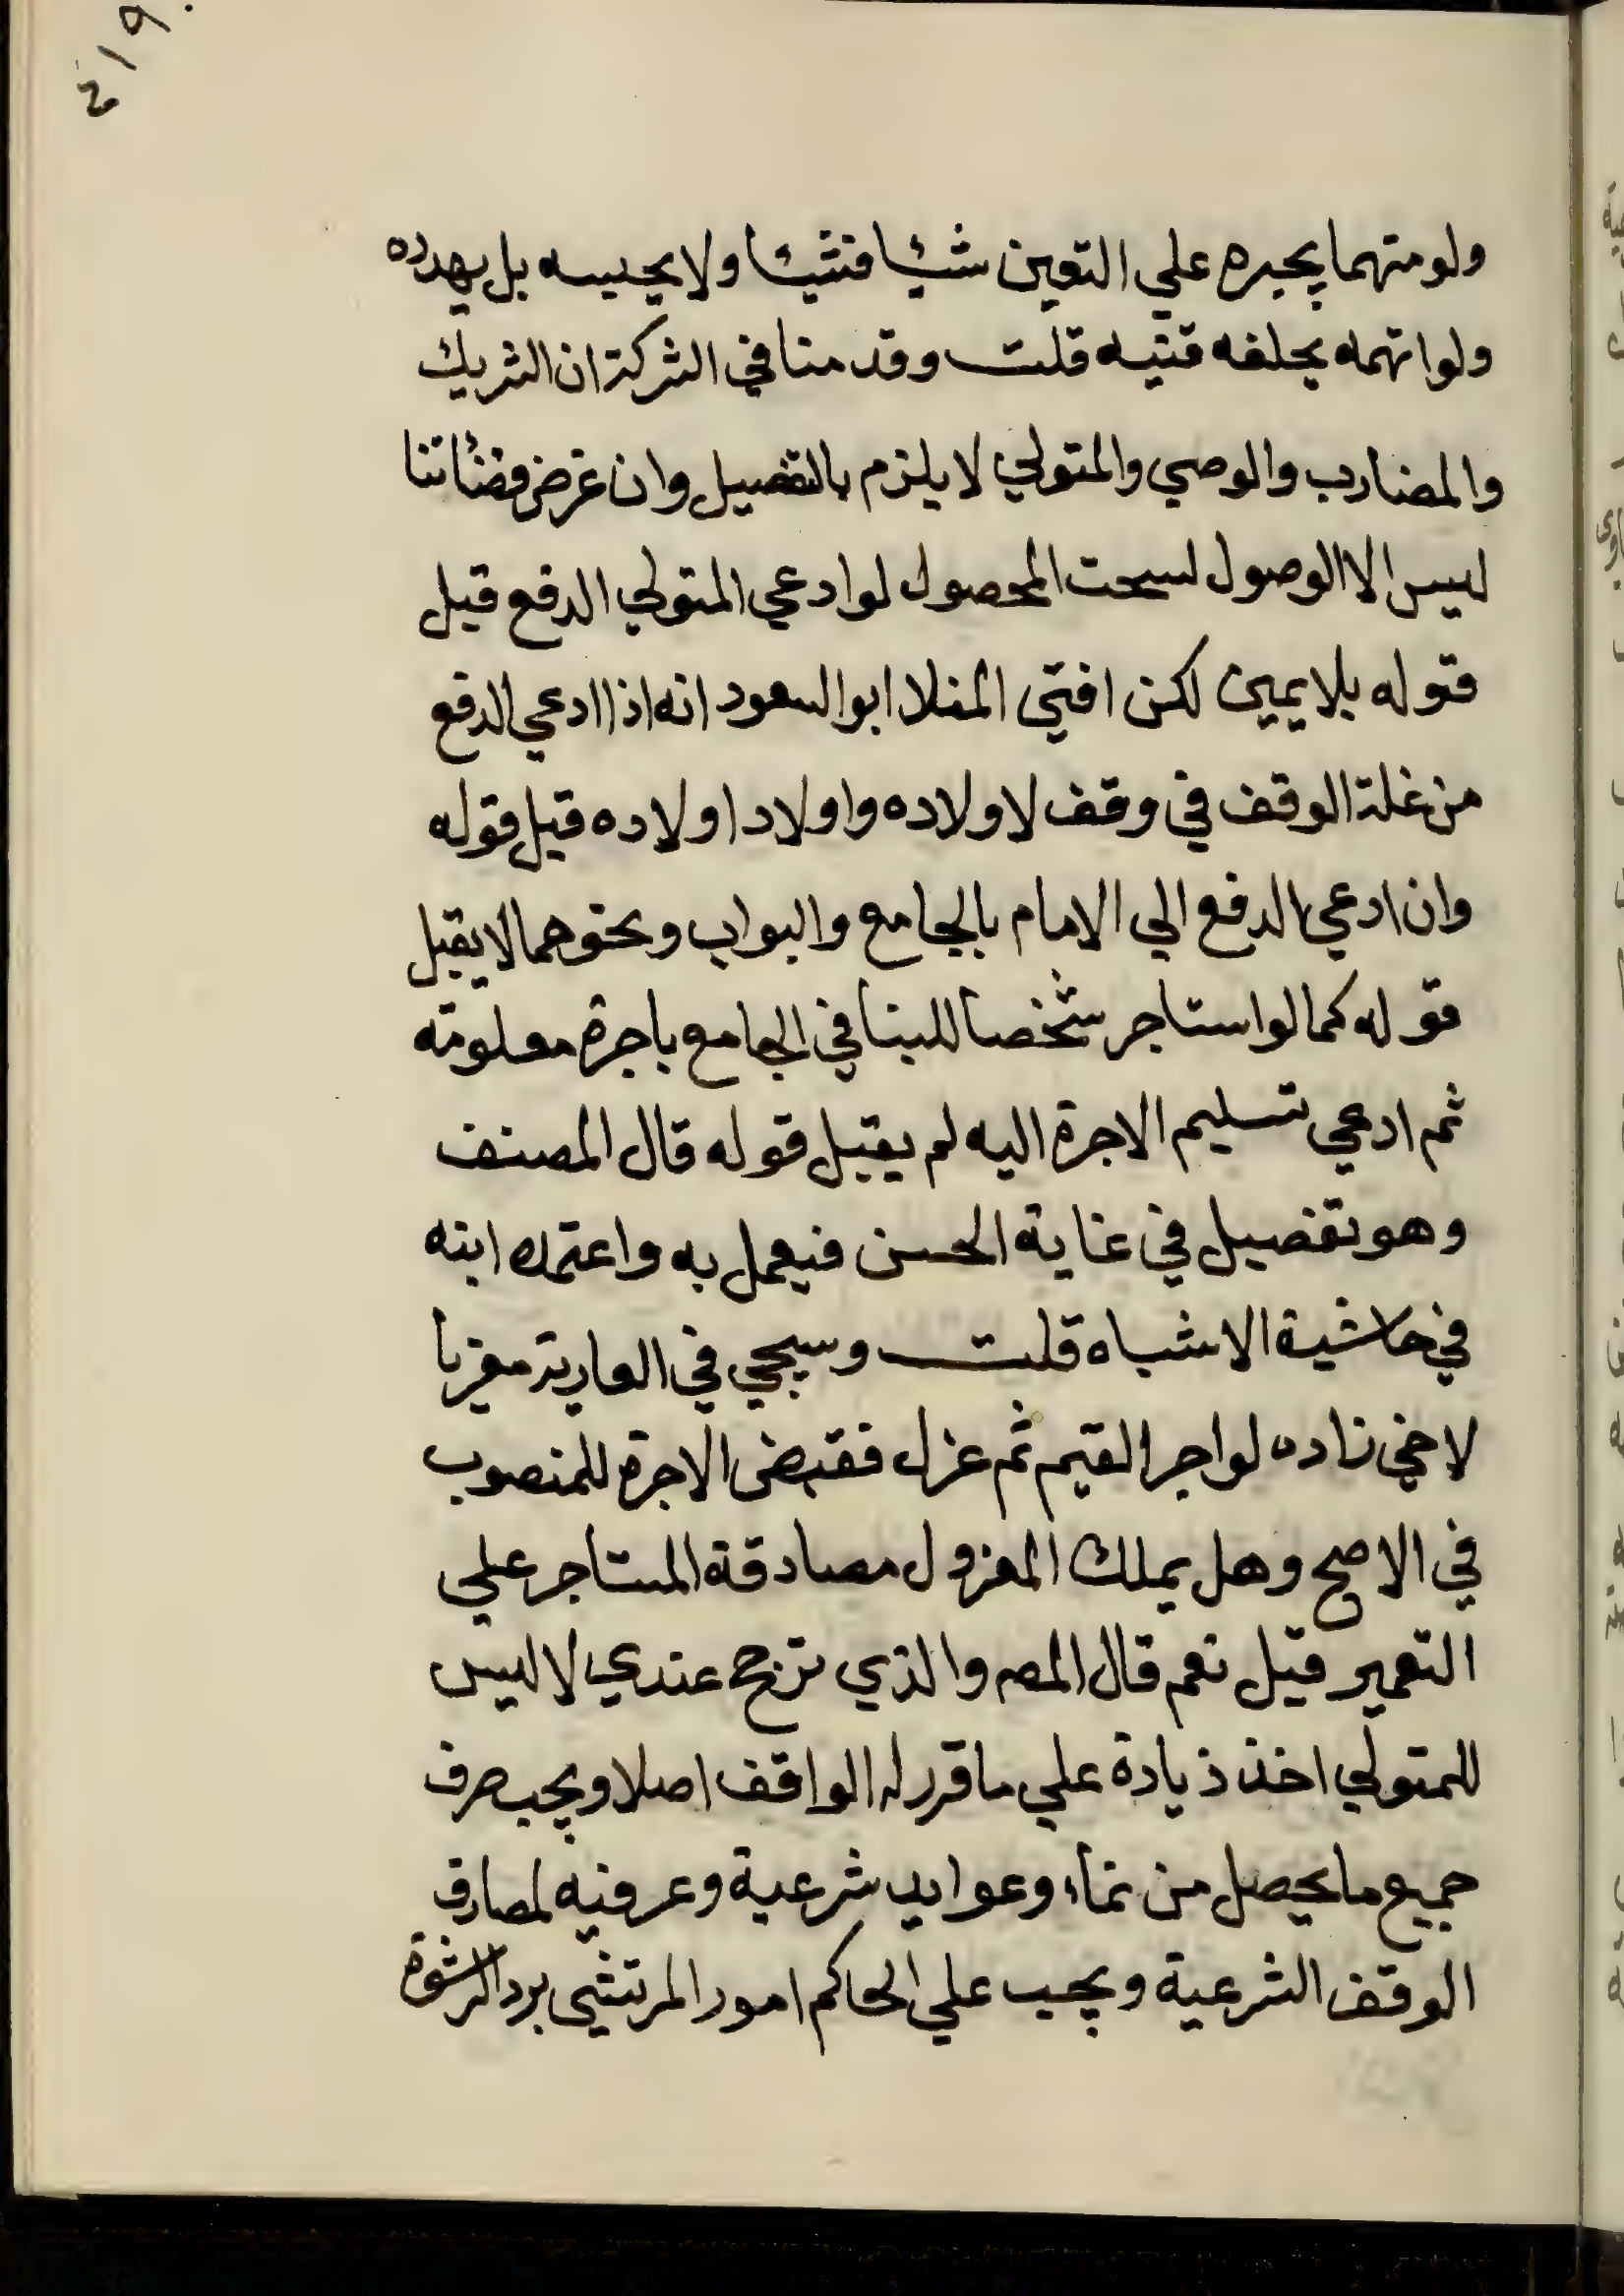 ٢١٩
ولو متهما يجبره علي التعين شيئا فشيئا ولا يحبسه بل يهدده
ولو اتهمه يحلفه قنيه قلت وقد منا في الشركة ان الشريك
والمضارب والوصي والمتولي لا يلزم بالتفصيل وان غرض قضاتنا
ليس الا الوصول لسحت المحصول لو ادعي المتولي الدفع قبل
قوله بلا يمين لكن افتي المنلا ابو السعود انه اذا ادعي الدفع
من غلة الوقف في وقف لاولاده واولاد اولاده قبل قوله
وان ادعي الدفع الي الامام بالجامع والبواب ونحوهما لا يقبل
قوله كما لو استاجر شخصا للبنا في الجامع باجرة معلومة
ثم ادعي تسليم الاجرة اليه لم يقبل قوله قال المصنف
وهو تفصيل في غاية الحسن فيعمل به واعتمده ابنه
في حاشية الاشباه قلت وسيجي في العارية معزيا
لاخي زاده لو اجر القيم ثم عزل فقبض الاجرة للمنصوب
في الاصح وهل يملك المعزول مصادقة المستاجر علي
التعمير قيل نعم قال المصه والذي ترجح عندي لا ليس
للمتولي اخذ زيادة علي ما قرر له الواقف اصلا ويجب صرف
جميع ما يحصل من نماء وعوايد شرعية وعرفيه لمصارف
الوقف الشرعية ويجب علي الحاكم امور المرتشي برد الرشوة